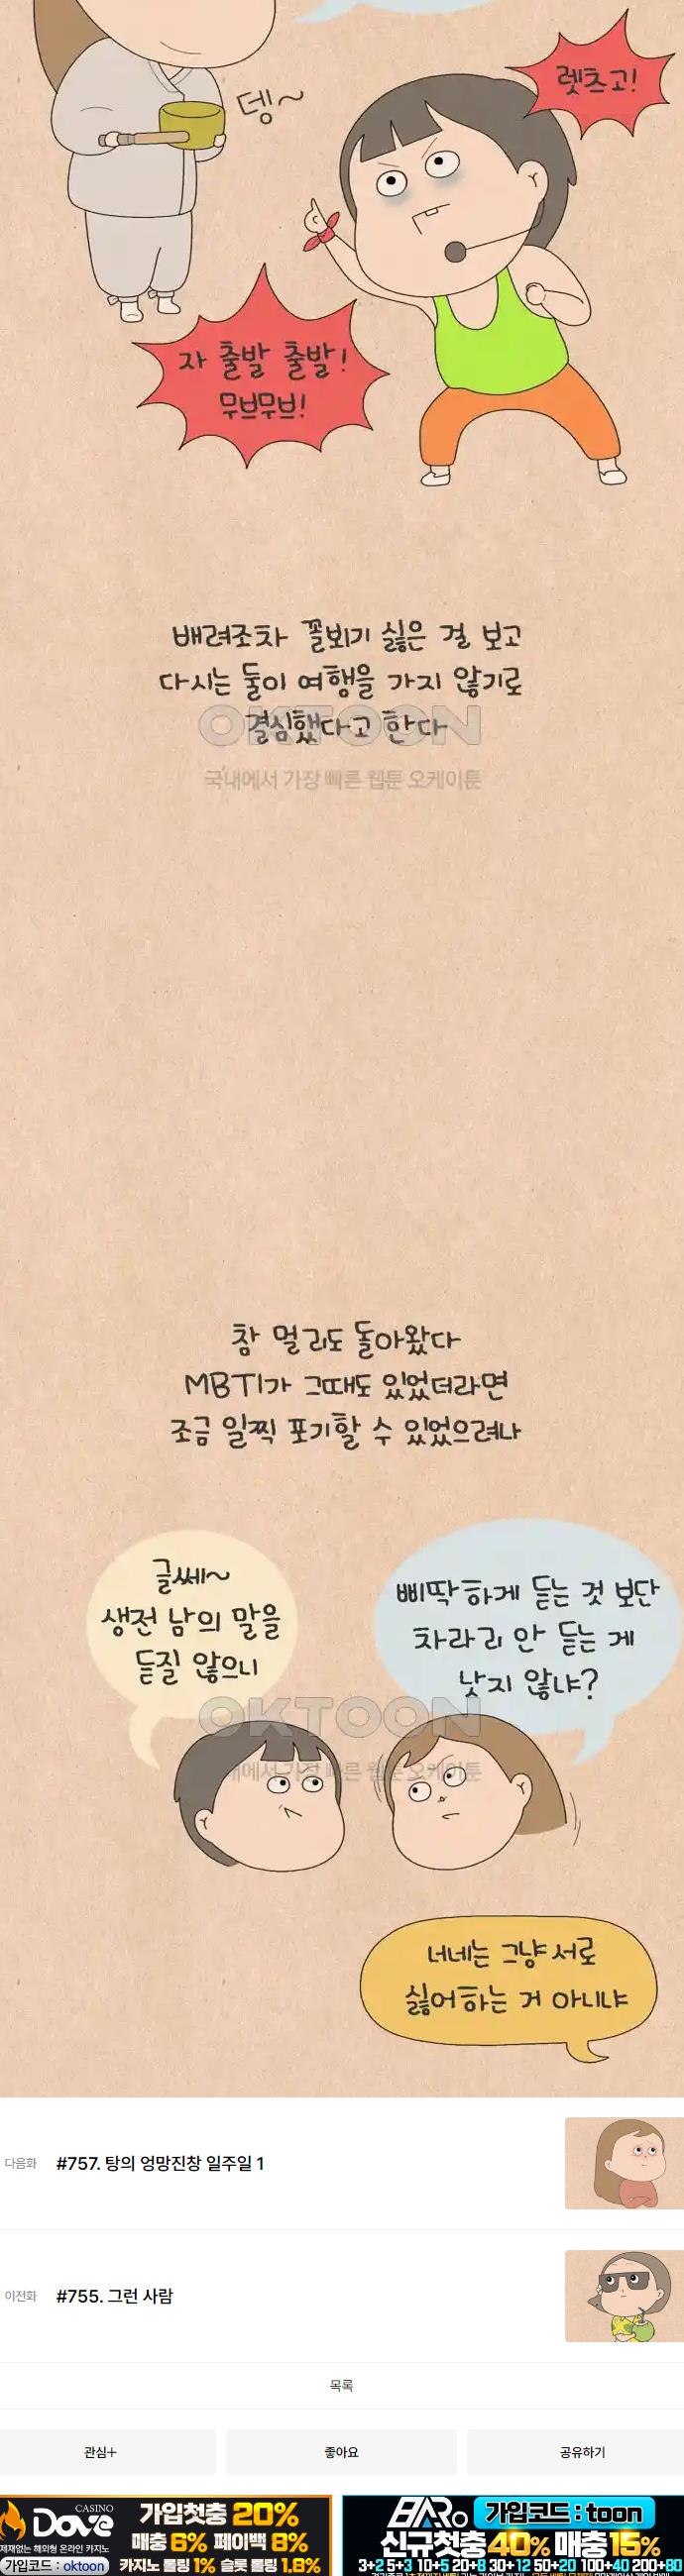 렛츠고!
뎅~
자 출발 출발!
무브무브!
배려조차 꼴뵈기 싫은 걸 보고
다시는 둘이 여행을 가지 않기로
결심했다고 한다
OKTOON
국내에서 가장 빠른 웹툰 오케이툰
참 멀리도 돌아왔다
MBTI가 그때도 있었더라면
조금 일찍 포기할 수 있었으려나
글쎄~
생전 남의 말을
듣질 않으니
삐딱하게 듣는 것 보단
차라리 안 듣는 게
낫지 않냐?
OKTOON
국내에서 가장 빠른 웹툰 오케이툰
너네는 그냥 서로
싫어하는 거 아니냐
다음화 #757. 탕의 엉망진창 일주일 1
이전화 #755. 그런 사람
목록
관심+ 좋아요 공유하기
CASINO
Dove
제재없는 해외형 온라인 카지노
가입코드 : oktoon
가입첫충 20%
매충 6% 페이백 8%
카지노 롤링 1% 슬롯 롤링 1.8%
BARO
가입코드 : toon
신규첫충 40% 매충 15%
3+2 5+3 10+5 20+8 30+12 50+20 100+40 200+80